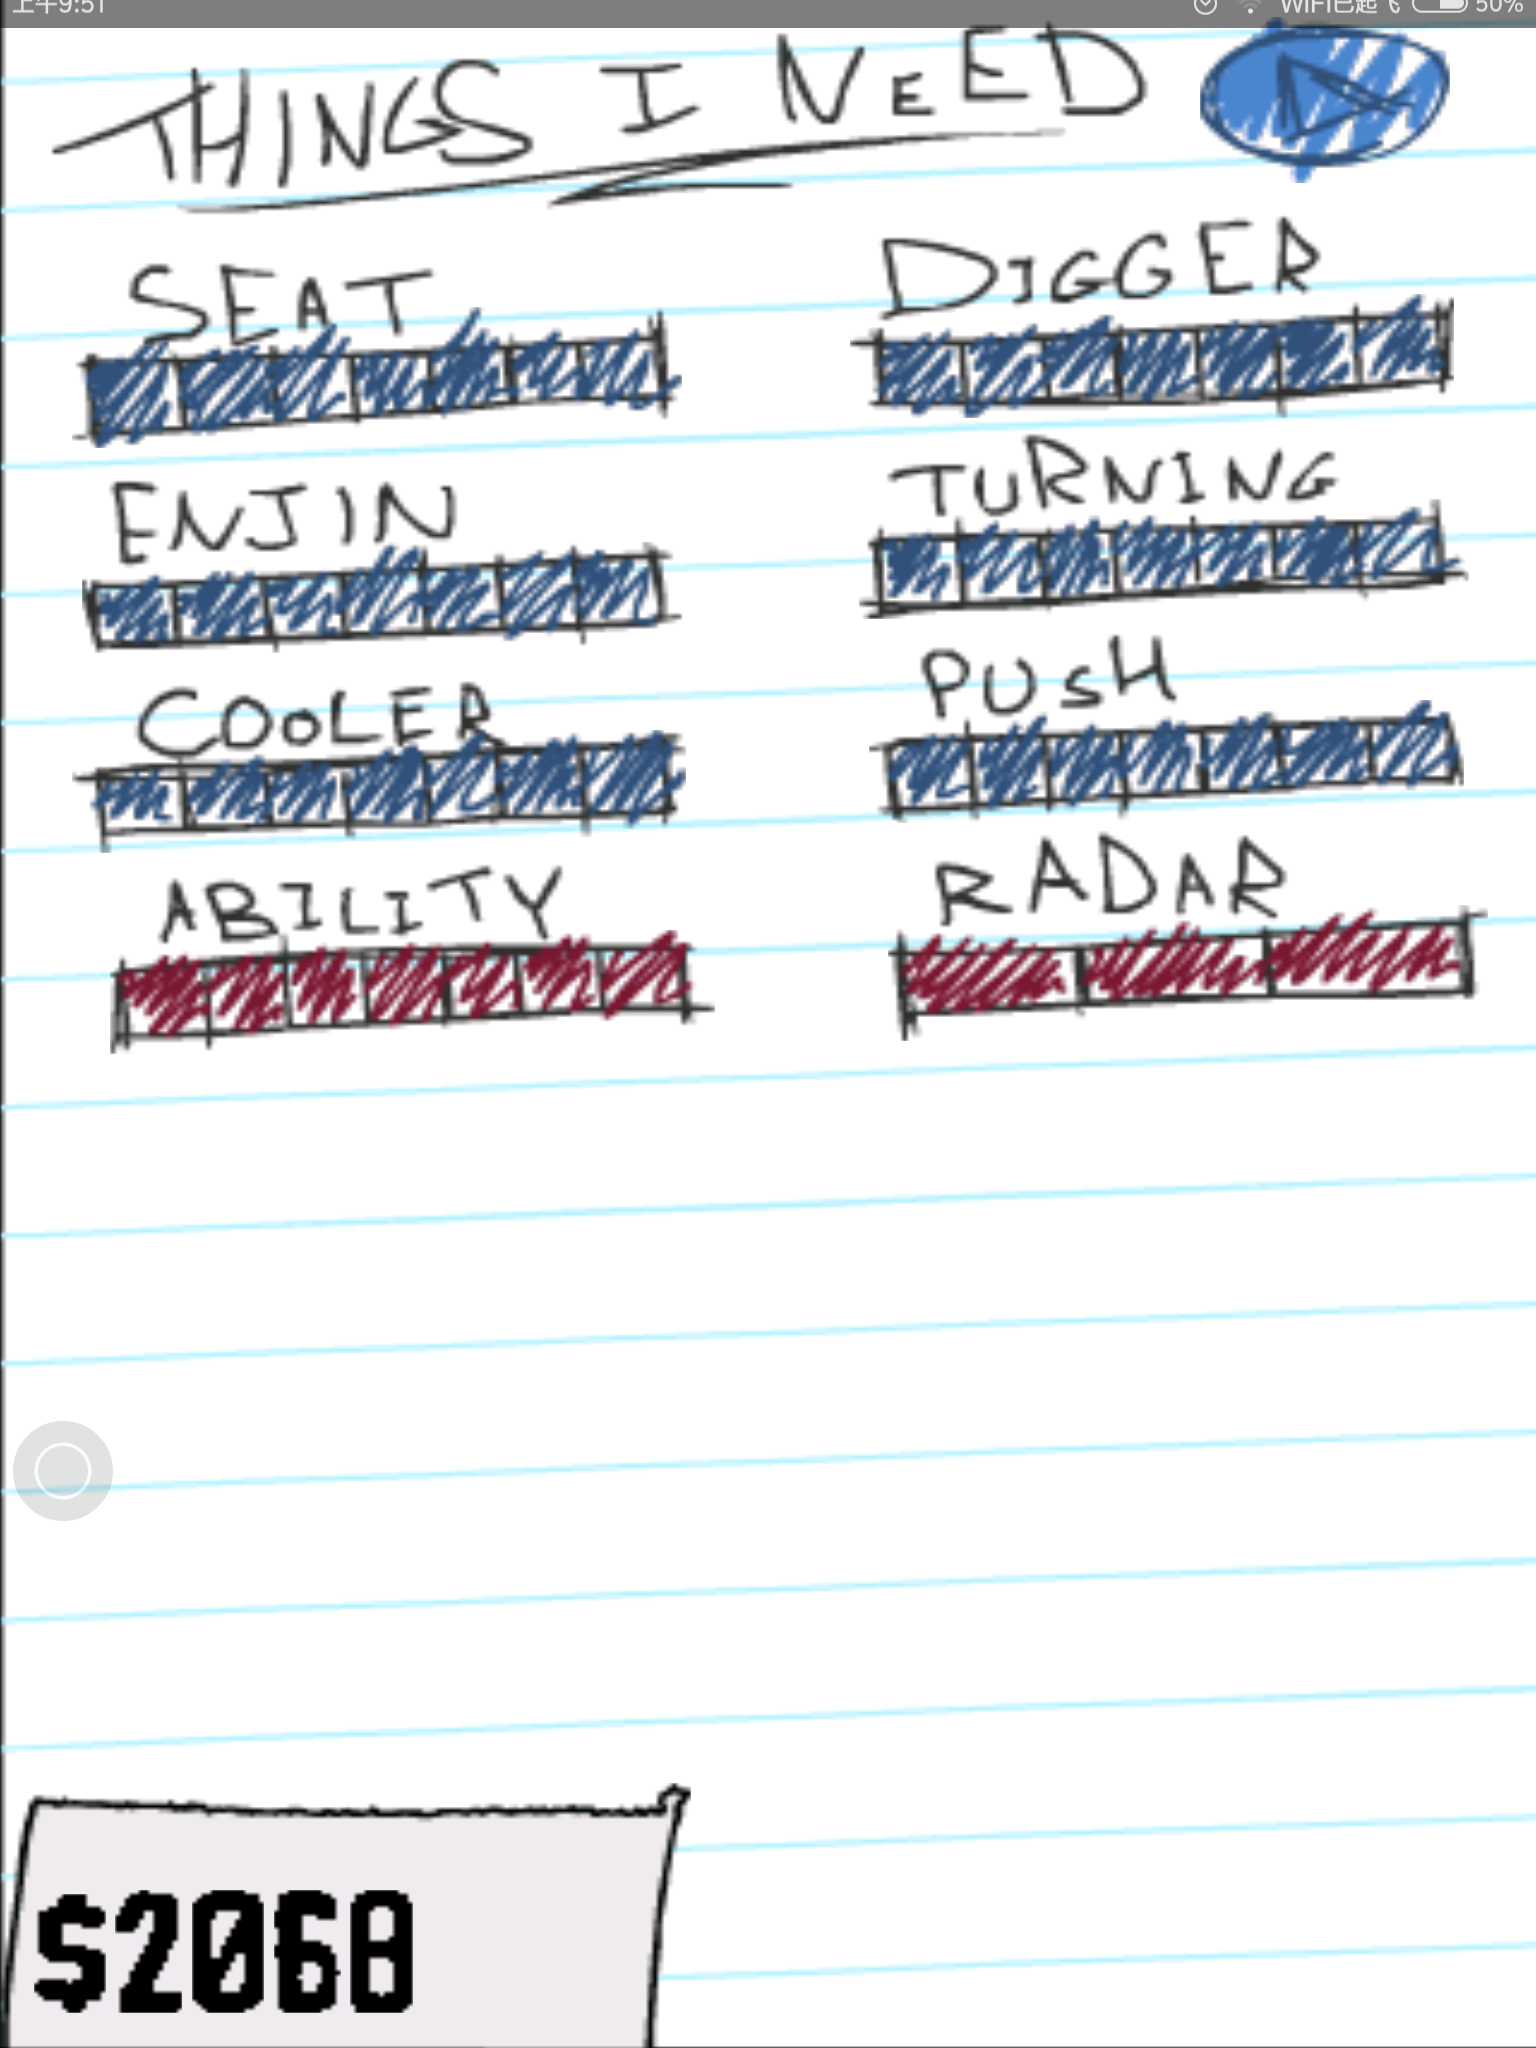 上午9:51
WIFI已起飞 50%
THINGS I NEED
SEAT
DIGGER
ENJIN
TURNING
COOLER
PUSH
ABILITY
RADAR
$2068